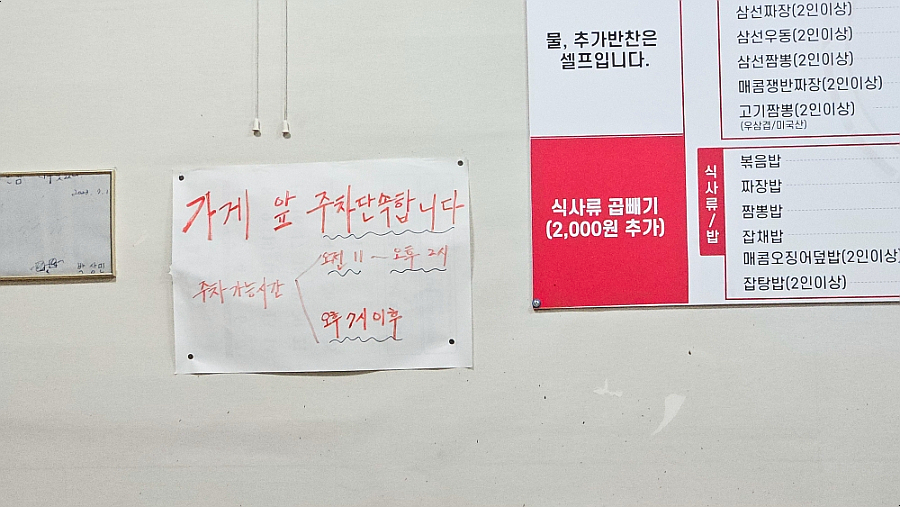 2003. 7. 1
박상민
가게 앞 주차단속합니다
주차가능시간
오전 11 ~ 오후 2시
오후 7시 이후
물, 추가반찬은
셀프입니다.
식사류 곱빼기
(2,000원 추가)
삼선짜장(2인이상)
삼선우동(2인이상)
삼선짬뽕(2인이상)
매콤쟁반짜장(2인이상)
고기짬뽕(2인이상)
(우삼겹/미국산)
식사류/밥
볶음밥
짜장밥
짬뽕밥
잡채밥
매콤오징어덮밥(2인이상)
잡탕밥(2인이상)